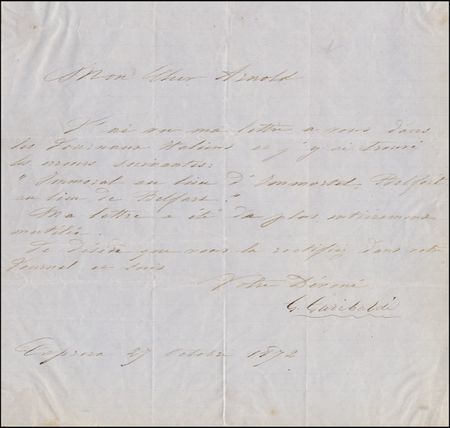 Mon Cher Arnold
J'ai vu ma lettre a vous dans
les Journaux Italiens et j'y ai trouvé
les erreurs suivantes:
"Immoral au lieu d'Immortel, Belfort
au lieu de Belfast."
Ma lettre a été de plus entièrement
mutilée.
Je désire que vous la rectifiez dans votre
Journal et suis
Votre Dévoué
G. Garibaldi
Caprera 27 Octobre 1872